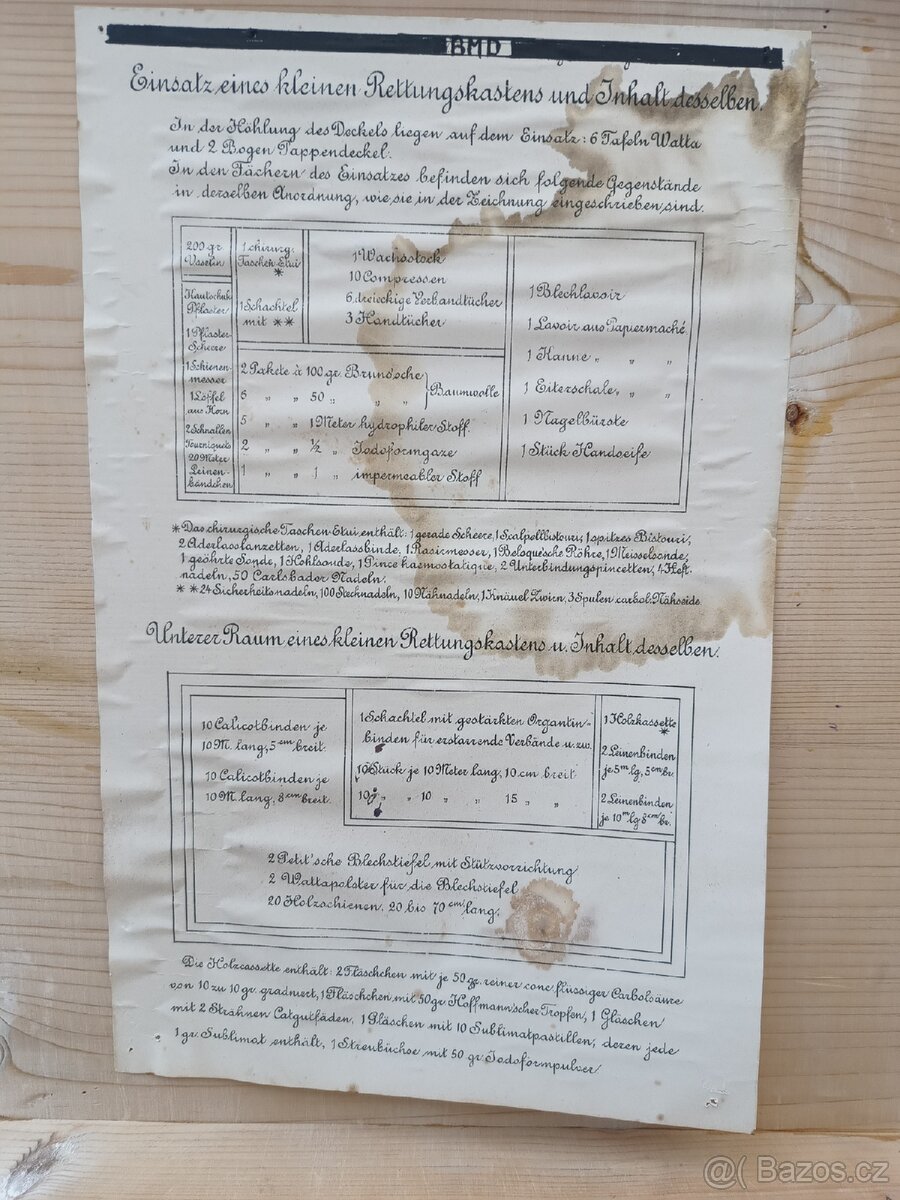 BMD
Einsatz eines kleinen Rettungskastens und Inhalt desselben.
In der Höhlung des Deckels liegen auf dem Einsatz: 6 Tafeln Watta
und 2 Bogen Pappendeckel.
In den Fächern des Einsatzes befinden sich folgende Gegenstände
in derselben Anordnung, wie sie in der Zeichnung eingeschrieben sind.
200 gr
Vaselin
Kautschuk
Pflaster
1 Pflaster
Scheere
1 Schienen
messer
1 Löffel
aus Horn
2 Schnallen
Tourniquets
20 Meter
Leinen-
bändchen
1 chirurg.
Taschen Etui
*
1 Schachtel
mit **
1 Wachsstock
10 Compressen
6 dreieckige Verbandtücher
3 Handtücher
2 Pakete à 100 gr. Bruns'sche
6 „ „ 50 „ „ „
Baumwolle
5 „ „ 1 Meter hydrophiler Stoff
2 „ „ ½ „ Jodoformgaze
1 „ „ 1 „ impermeabler Stoff
1 Blechlavoir
1 Lavoir aus Papiermaché
1 Kanne „ „ „
1 Eiterschale „ „ „
1 Nagelbürste
1 Stück Handseife
* Das chirurgische Taschen-Etui enthält: 1 gerade Scheere, 1 Scalpellbistouri, 1 spitzes Bistouri,
2 Aderlasslanzetten, 1 Aderlassbinde, 1 Rasirmesser, 1 Beloque'sche Röhre, 1 Meisselsonde,
1 geöhrte Sonde, 1 Hohlsonde, 1 Pince haemostatique, 2 Unterbindungspincetten, 4 Heft-
nadeln, 50 Carlsbader Nadeln.
** 24 Sicherheitsnadeln, 100 Stecknadeln, 10 Nähnadeln, 1 Knäuel Zwirn, 3 Spulen carbol. Nähseide
Unterer Raum eines kleinen Rettungskastens u. Inhalt desselben.
10 Calicotbinden je
10 M. lang, 5 cm breit.
10 Calicotbinden je
10 M. lang, 8 cm breit.
1 Schachtel mit gestärkten Organtin-
binden für erstarrende Verbände u. zw.
10 Stück je 10 Meter lang, 10 cm breit
10 „ „ 10 „ „ 15 „ „
1 Holzkassette
*
2 Leinenbinden
je 5 m lg, 5 cm br.
2 Leinenbinden
je 10 m lg 8 cm br.
2 Petit'sche Blechstiefel mit Stützvorrichtung
2 Wattapolster für die Blechstiefel
20 Holzschienen, 20 bis 70 cm lang.
Die Holzcassette enthält: 2 Fläschchen mit je 50 gr. reiner conc. flüssiger Carbolsäure
von 10 zu 10 gr. graduiert, 1 Fläschchen mit 50 gr Hoffmann'scher Tropfen, 1 Gläschen
mit 2 Strähnen Catgutfäden, 1 Gläschen mit 10 Sublimatpastillen, deren jede
1 gr. Sublimat enthält, 1 Streubüchse mit 50 gr. Jodoformpulver
@( Bazos.cz